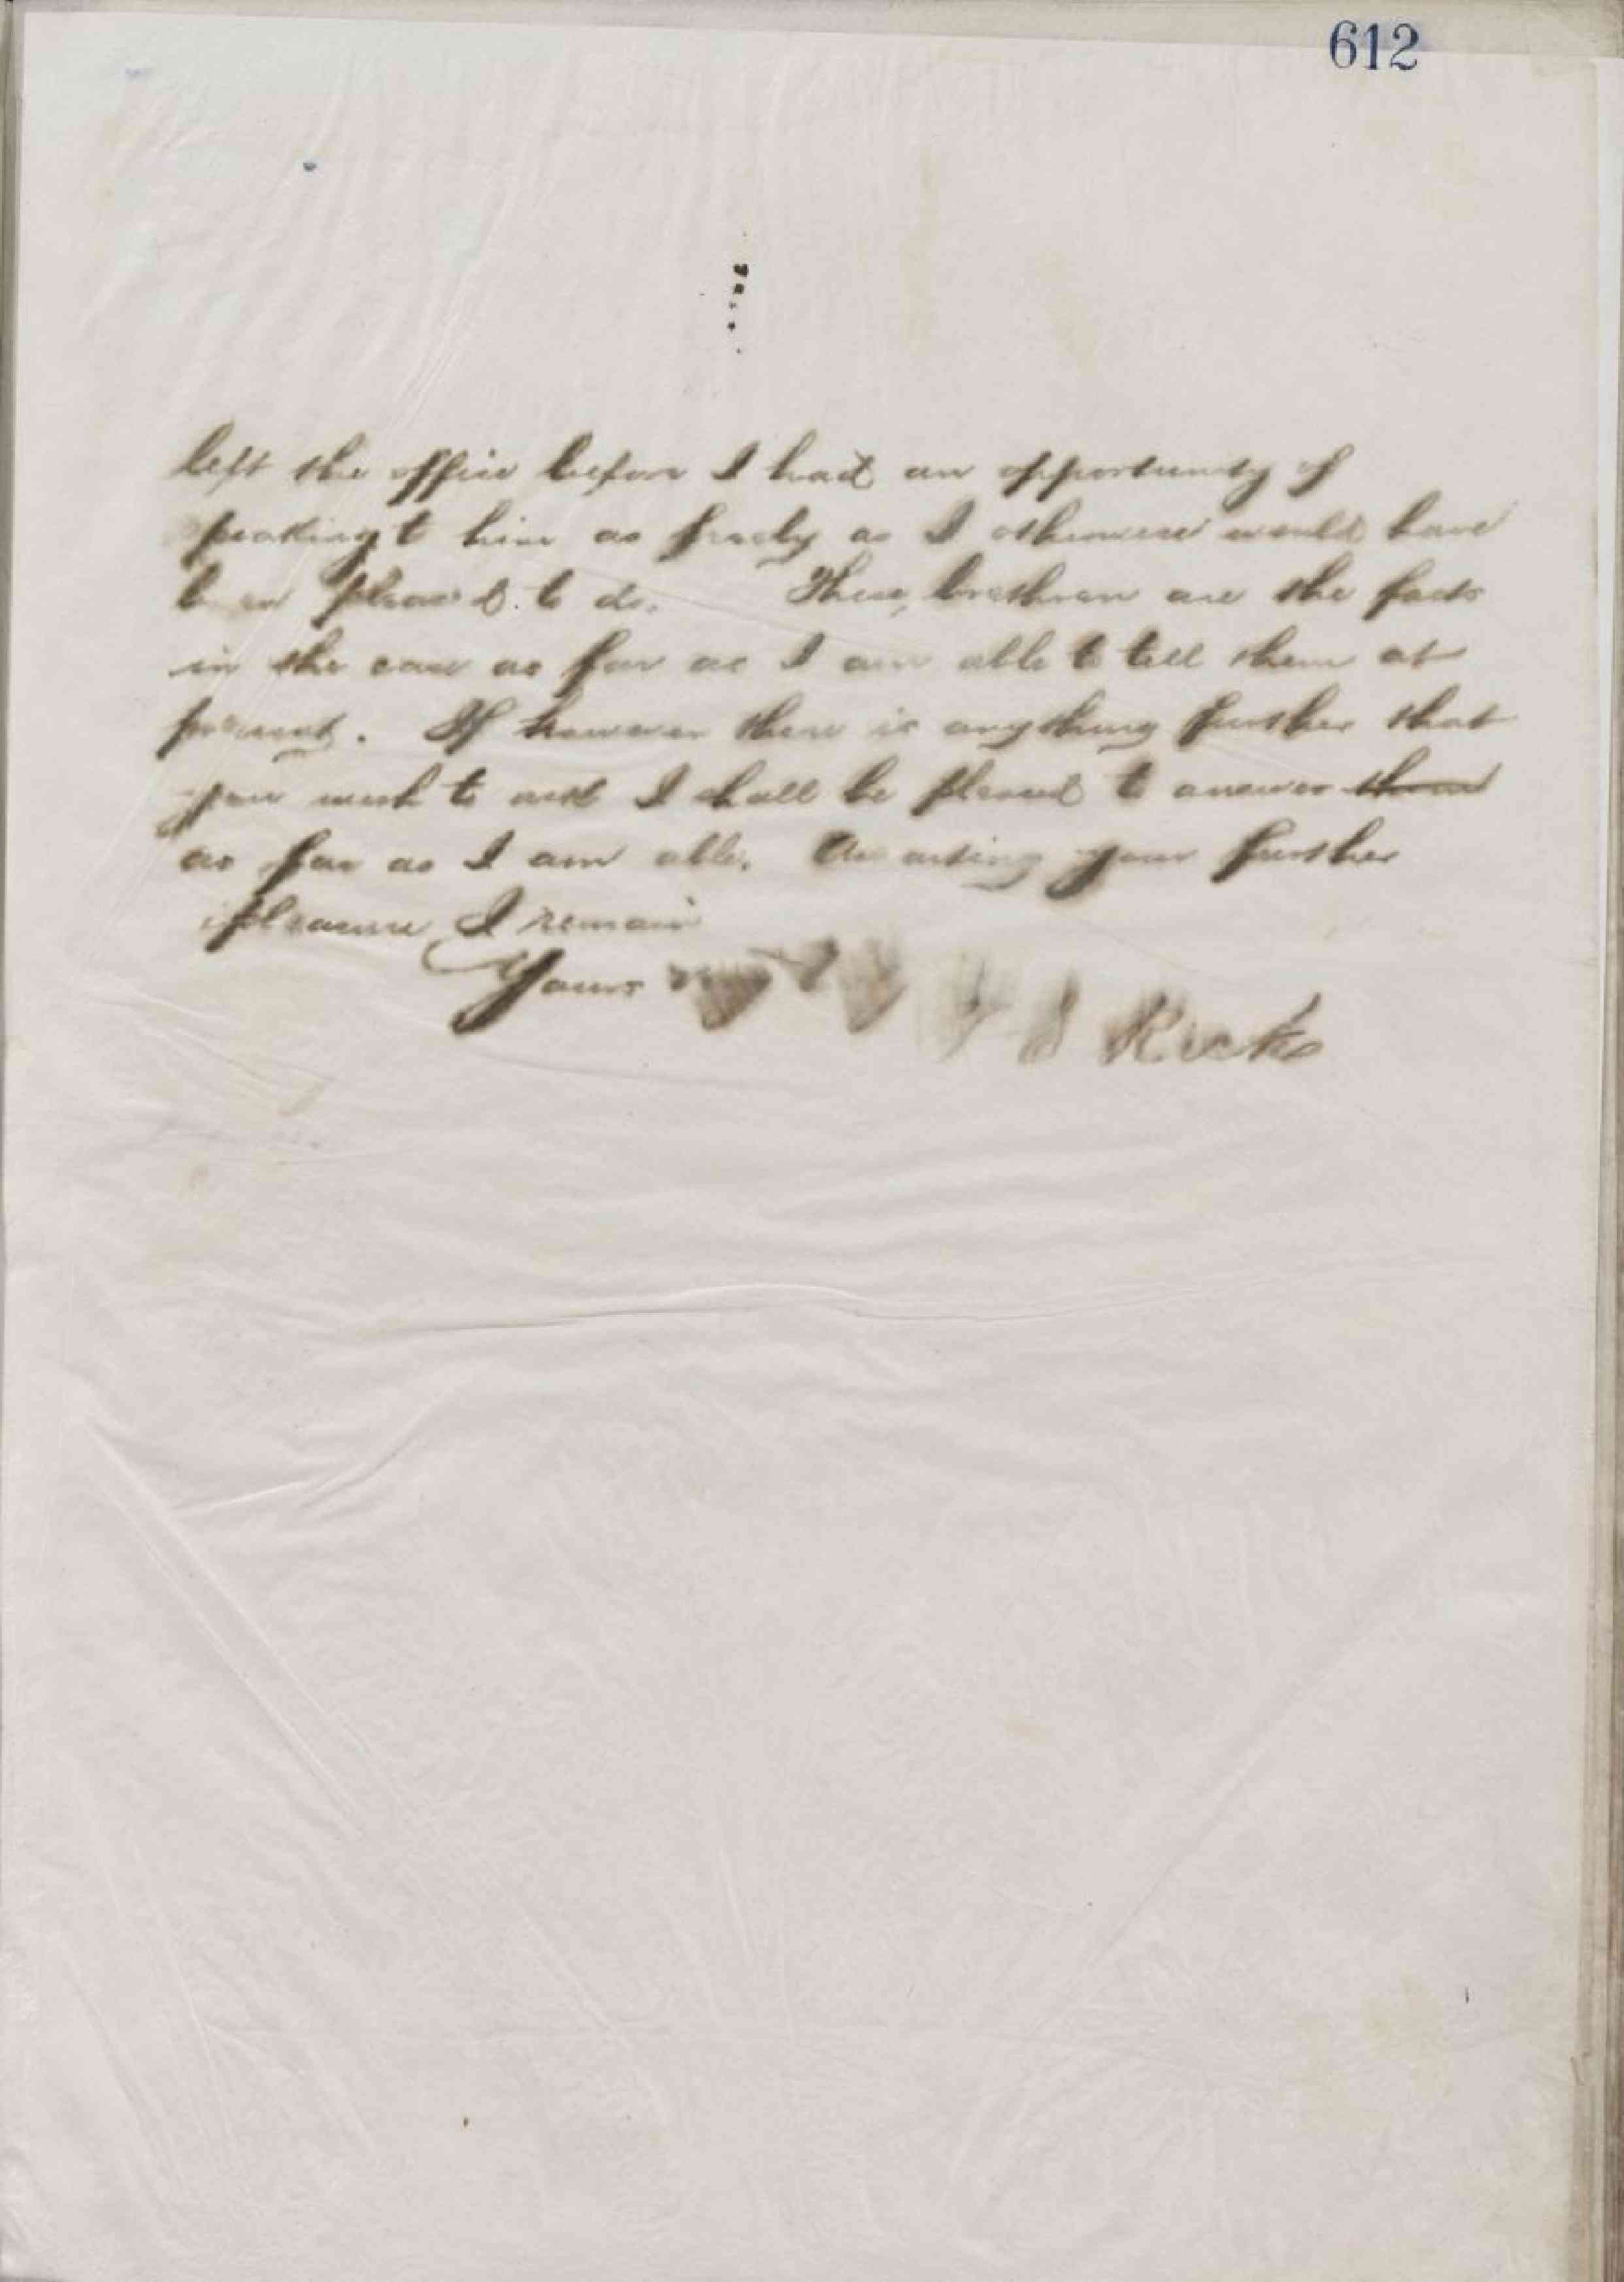 612
left the office before I had an opportunity of
speaking to him as freely as I otherwise would have
been pleased to do. These, brethren are the facts
in the case as far as I am able to tell them at
present. If however there is anything further that
you wish to ask I shall be pleased to answer them
as far as I am able. Awaiting your further
pleasure I remain
Yours
J Ricks